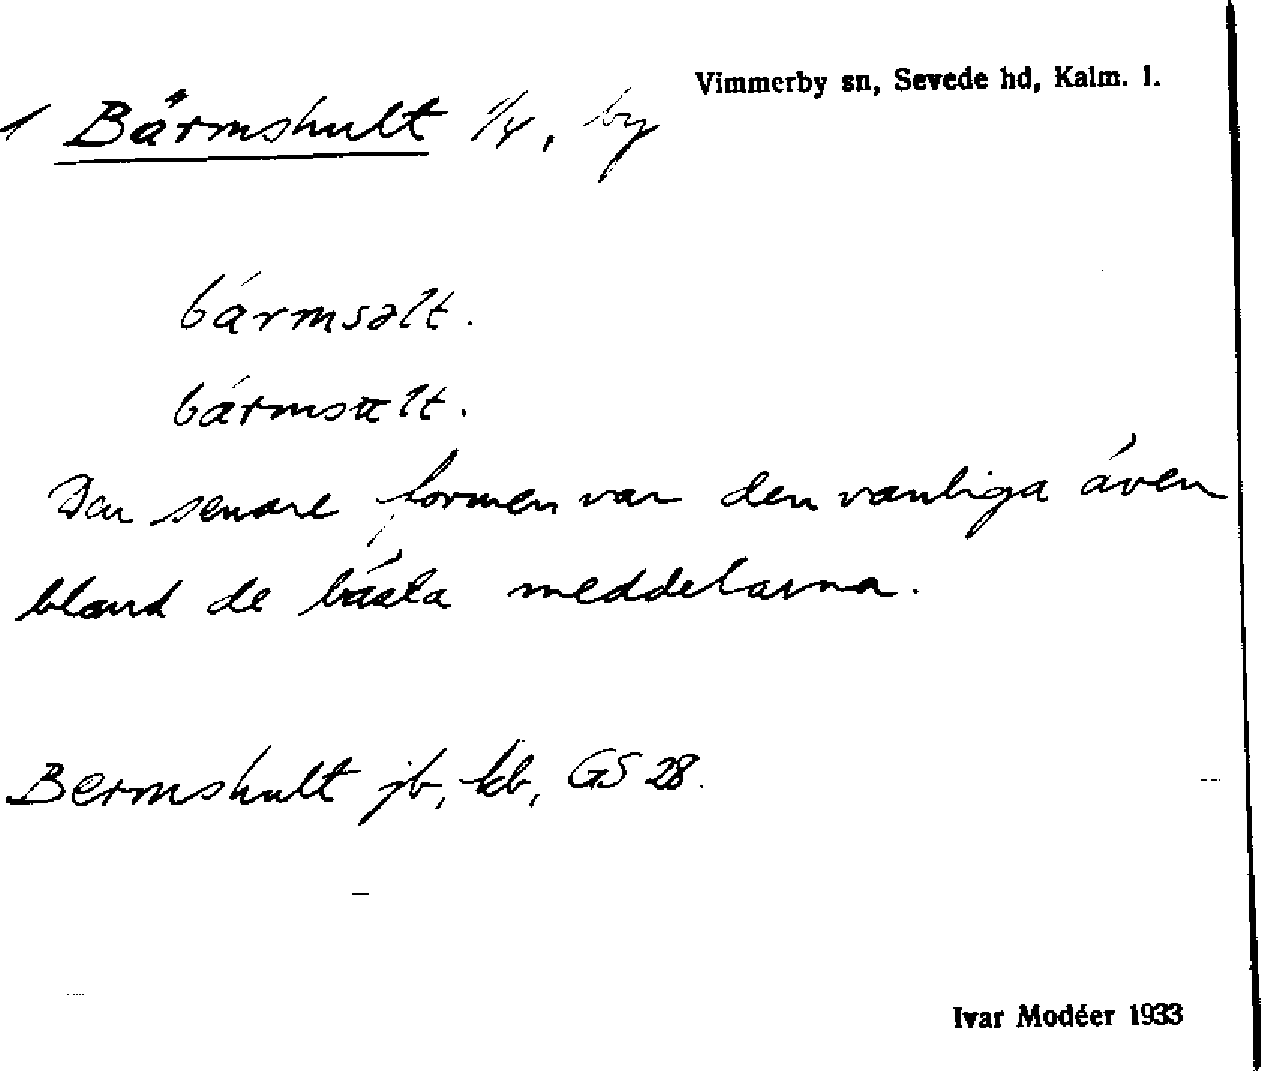 Vimmerby sn, Sevede hd, Kalm. l.
1 Bärmshult 1/4, by
bármsəlt.
bármsält.
Den senare formen var den vanliga även
bland de bästa meddelarna.
Bermshult jb, kb, GS 28.
Ivar Modéer 1933